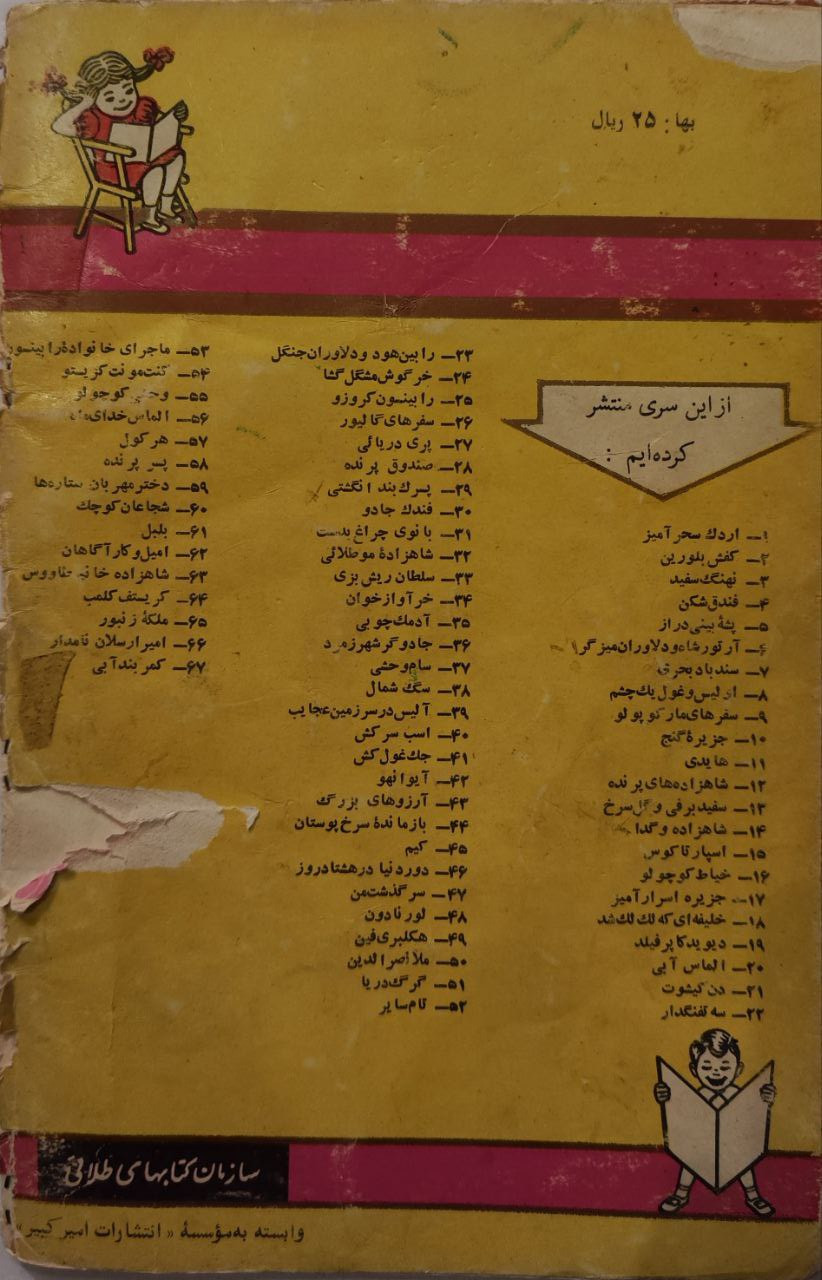 بها: ۲۵ ریال
از این سری منتشر
کرده‌ایم :
۱ــ اردك سحرآمیز
۲ــ کفش بلورین
۳ــ نهنگ سفید
۴ــ فندق شکن
۵ــ پشهٔ بینی دراز
۶ــ آرتورشاه و دلاوران میزگرد
۷ــ سندباد بحری
۸ــ اولیس و غول یك چشم
۹ــ سفرهای مارکوپولو
۱۰ــ جزیرهٔ گنج
۱۱ــ هایدی
۱۲ــ شاهزاده‌های پرنده
۱۳ــ سفیدبرفی و گل سرخ
۱۴ــ شاهزاده و گدا
۱۵ــ اسپارتاکوس
۱۶ــ خیاط کوچولو
۱۷ــ جزیره اسرارآمیز
۱۸ــ خلیفه‌ای که لك لك شد
۱۹ــ دیویدکاپرفیلد
۲۰ــ الماس آبی
۲۱ــ دن کیشوت
۲۲ــ سه تفنگدار
۲۳ــ رابین هود و دلاوران جنگل
۲۴ــ خرگوش مشگل گشا
۲۵ــ رابینسون کروزو
۲۶ــ سفرهای گالیور
۲۷ــ پری دریائی
۲۸ــ صندوق پرنده
۲۹ــ پسرك بند انگشتی
۳۰ــ فندك جادو
۳۱ــ بانوی چراغ بدست
۳۲ــ شاهزادهٔ موطلائی
۳۳ــ سلطان ریش بزی
۳۴ــ خرآوازخوان
۳۵ــ آدمك چوبی
۳۶ــ جادوگر شهر زمرد
۳۷ــ سام وحشی
۳۸ــ سگ شمال
۳۹ــ آلیس در سرزمین عجایب
۴۰ــ اسب سرکش
۴۱ــ جك غول کش
۴۲ــ آیوانهو
۴۳ــ آرزوهای بزرگ
۴۴ــ بازماندهٔ سرخ پوستان
۴۵ــ کیم
۴۶ــ دور دنیا در هشتاد روز
۴۷ــ سرگذشت من
۴۸ــ لورنادون
۴۹ــ هکلبری فین
۵۰ــ ملانصرالدین
۵۱ــ گرگ دریا
۵۲ــ تام سایر
۵۳ــ ماجرای خانوادهٔ رابینسون
۵۴ــ کنت مونت کریستو
۵۵ــ وحشی کوچولو
۵۶ــ الماس خدای ماه
۵۷ــ هرکول
۵۸ــ پسر پرنده
۵۹ــ دختر مهربان ستاره‌ها
۶۰ــ شجاعان کوچك
۶۱ــ بلبل
۶۲ــ امیل و کارآگاهان
۶۳ــ شاهزاده خانم طاووس
۶۴ــ کریستف کلمب
۶۵ــ ملکهٔ زنبور
۶۶ــ امیر ارسلان نامدار
۶۷ــ کمربند آبی
سازمان کتابهای طلائی
وابسته به مؤسسهٔ « انتشارات امیر کبیر »